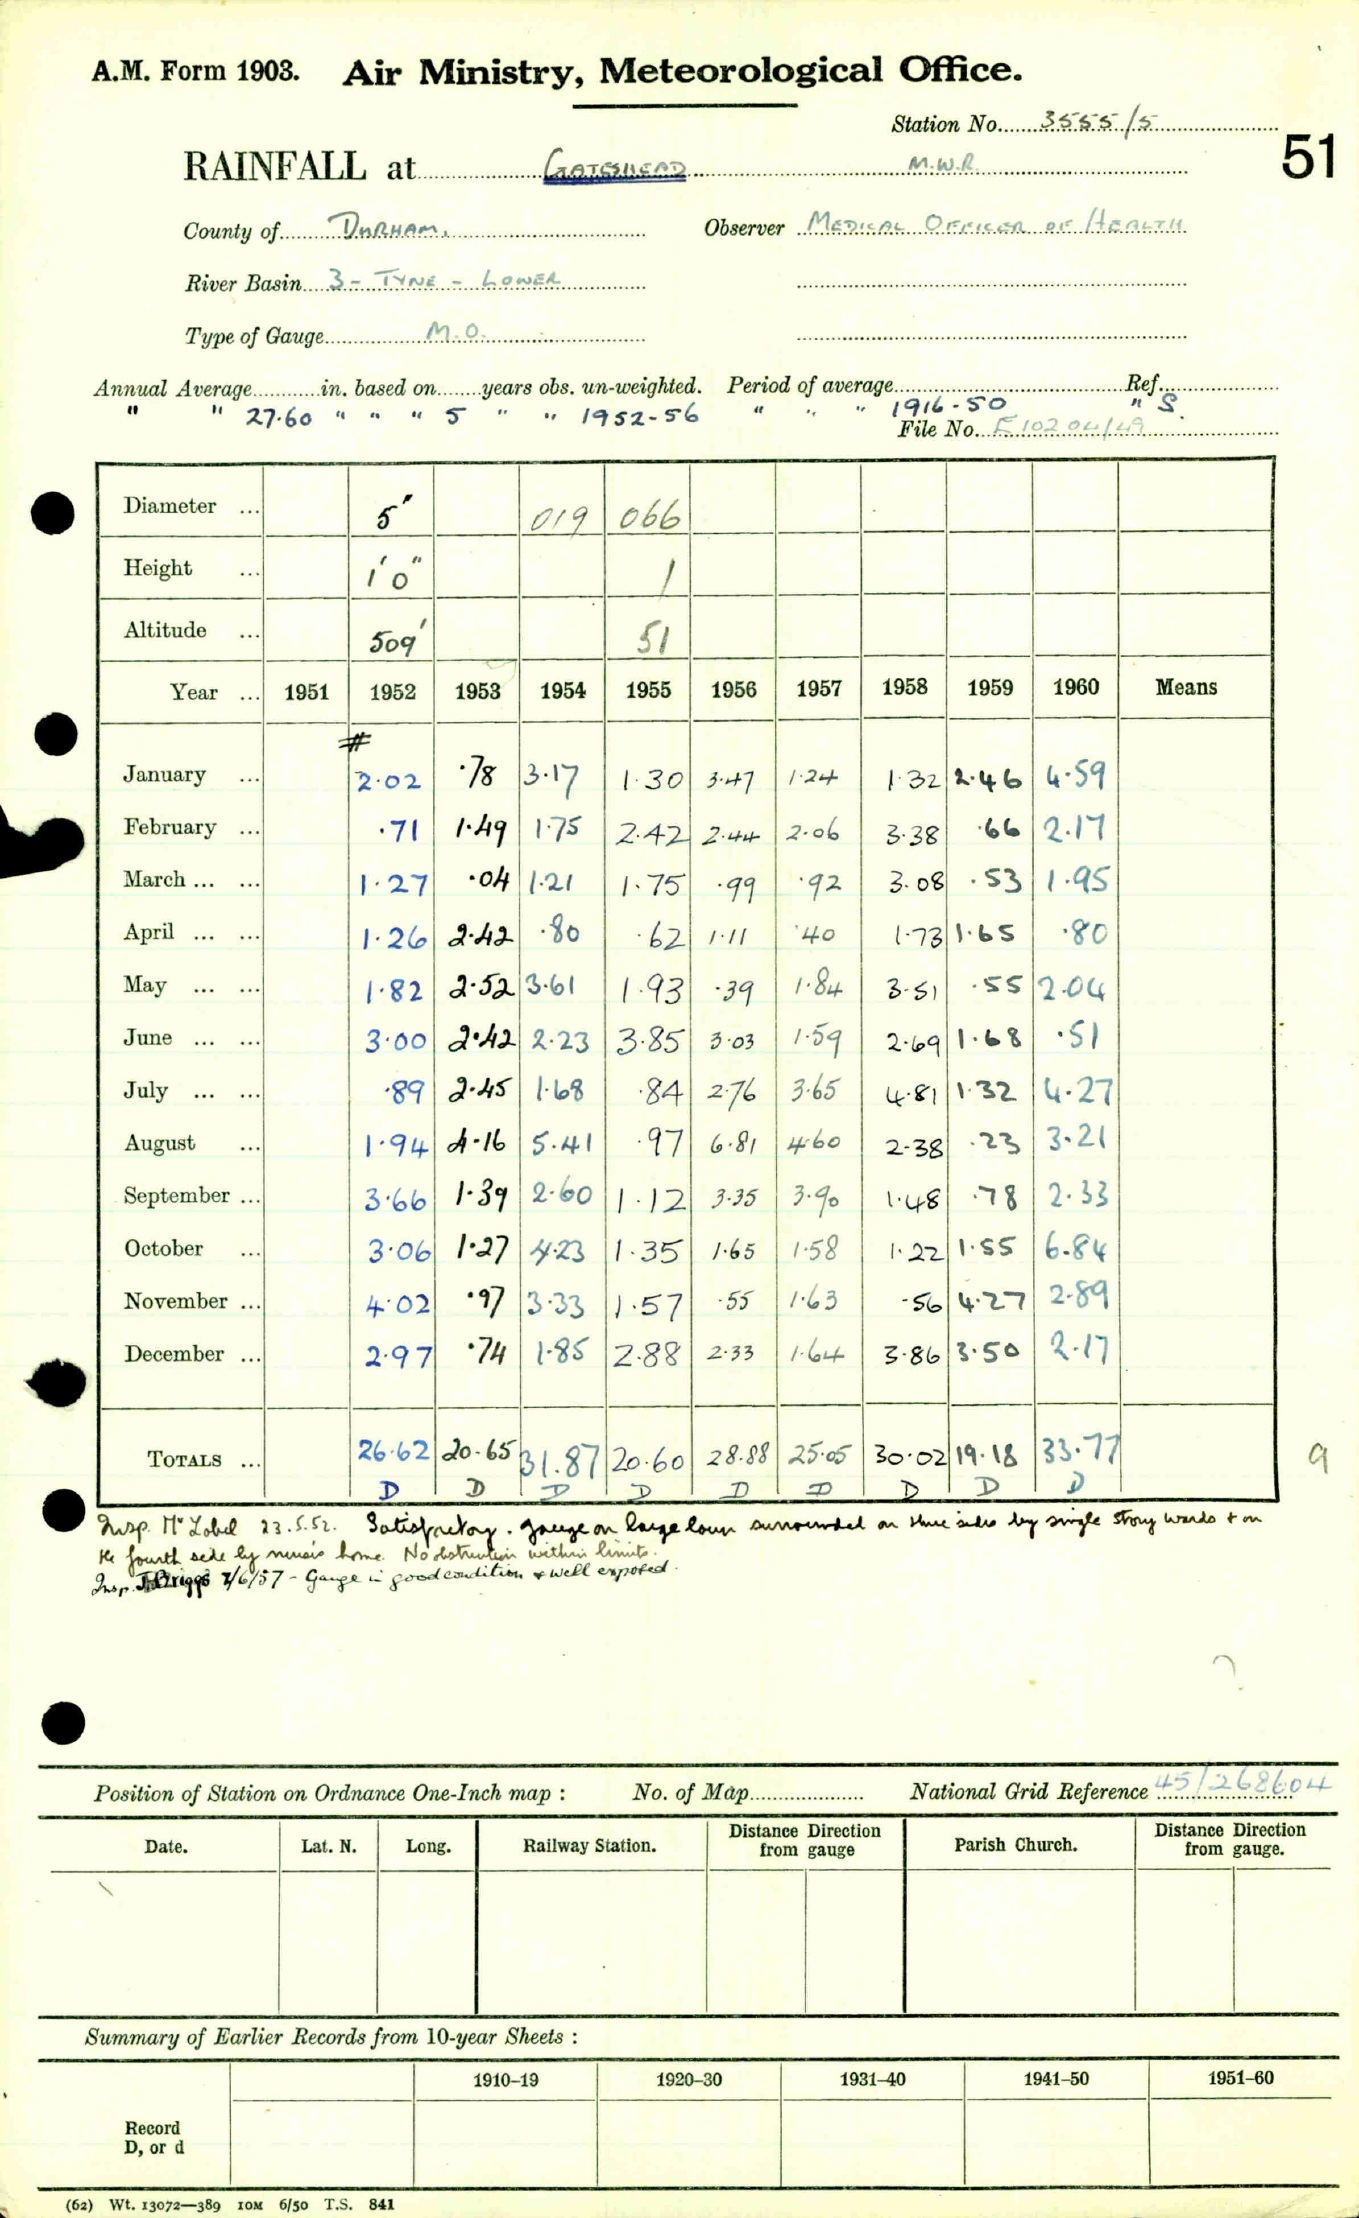 A.M. Form 1903. Air Ministry, Meteorological Office.
Station No. 3555/5
51
RAINFALL at GATESHEAD M.W.R.
County of DURHAM. Observer MEDICAL OFFICER OF HEALTH
River Basin 3 - TYNE - LOWER
Type of Gauge M.O.
Annual Average in. based on years obs. un-weighted. Period of average Ref.
" " 27.60 " " " 5 " " 1952-56 " " " 1916-50 " S.
File No. E10204/49
Diameter ... 5" 019 066
Height ... 1'0" 1
Altitude ... 509' 51
Year ... 1951 1952 1953 1954 1955 1956 1957 1958 1959 1960 Means
#
January ... 2.02 .78 3.17 1.30 3.47 1.24 1.32 2.46 4.59
February ... .71 1.49 1.75 2.42 2.44 2.06 3.38 .66 2.17
March ... ... 1.27 .04 1.21 1.75 .99 .92 3.08 .53 1.95
April ... ... 1.26 2.42 .80 .62 1.11 .40 1.73 1.65 .80
May ... ... 1.82 2.52 3.61 1.93 .39 1.84 3.51 .55 2.04
June ... ... 3.00 2.42 2.23 3.85 3.03 1.59 2.69 1.68 .51
July ... ... .89 2.45 1.68 .84 2.76 3.65 4.81 1.32 4.27
August ... 1.94 4.16 5.41 .97 6.81 4.60 2.38 .23 3.21
September ... 3.66 1.39 2.60 1.12 3.35 3.90 1.48 .78 2.33
October ... 3.06 1.27 4.23 1.35 1.65 1.58 1.22 1.55 6.84
November ... 4.02 .97 3.33 1.57 .55 1.63 .56 4.27 2.89
December ... 2.97 .74 1.85 2.88 2.33 1.64 3.86 3.50 2.17
TOTALS ... 26.62 20.65 31.87 20.60 28.88 25.05 30.02 19.18 33.77 9
D D D D D D D D D
Insp. Mr Lobel 23.5.52. Satisfactory. Gauge on large lawn surrounded on three sides by single story wards & on
the fourth side by nurses home. No obstruction within limits.
Insp. J. Briggs 7/6/57 - Gauge in good condition & well exposed.
Position of Station on Ordnance One-Inch map : No. of Map National Grid Reference 45/268604
Date. Lat. N. Long. Railway Station. Distance Direction from gauge Parish Church. Distance Direction from gauge.
Summary of Earlier Records from 10-year Sheets :
1910–19 1920–30 1931–40 1941–50 1951–60
Record
D, or d
(62) Wt. 13072—389 10M 6/50 T.S. 841